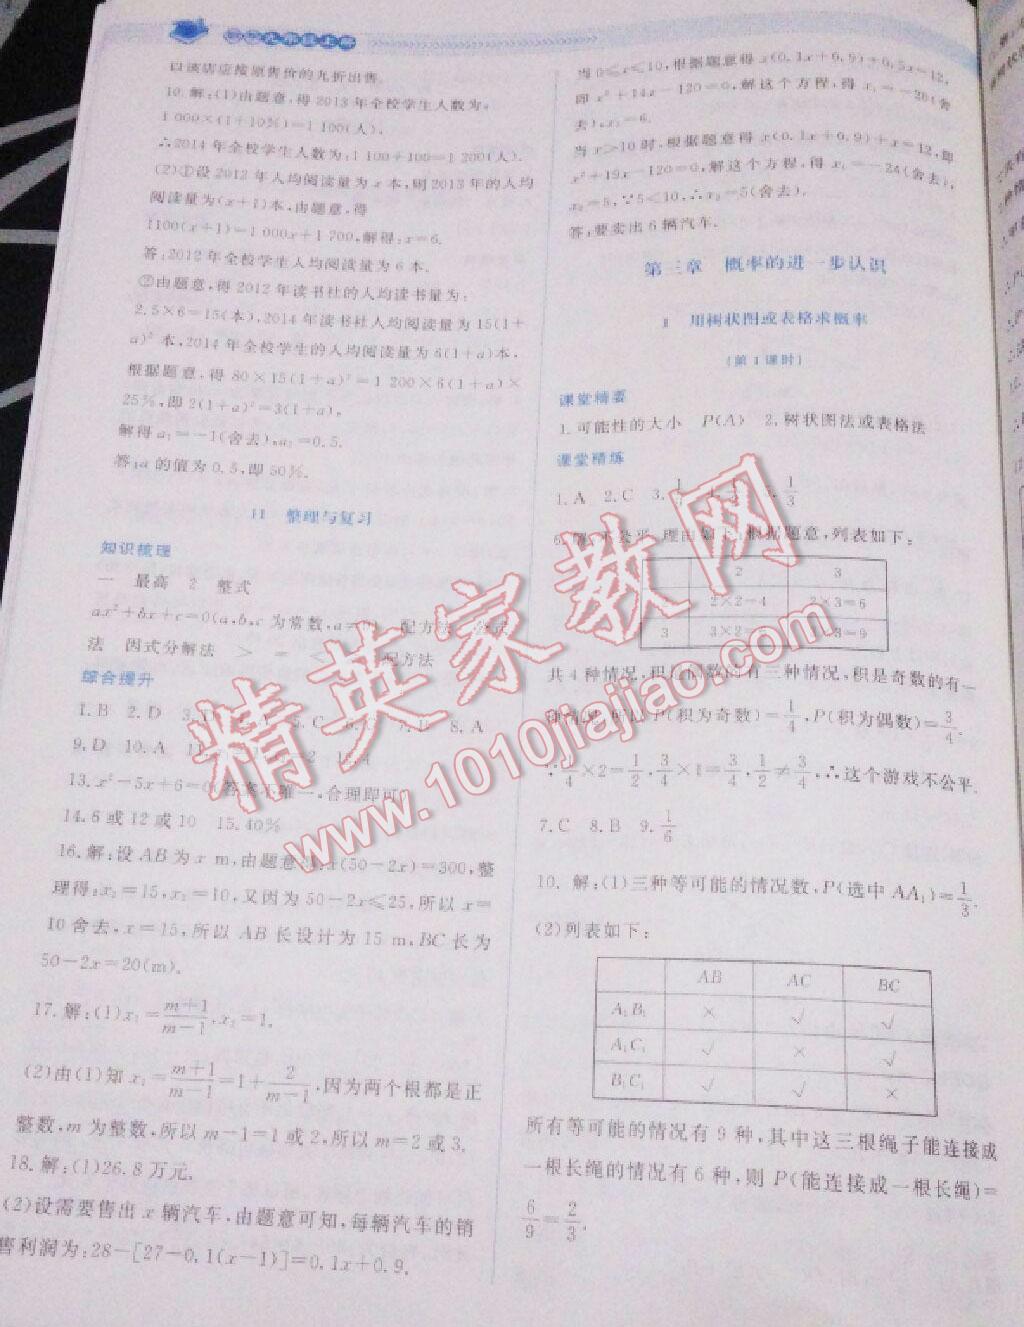 以该店应按原售价的九折出售.
10.解:(1)由题意,得2013年全校学生人数为:
1 000×(1+10%)=1 100(人).
∴2014年全校学生人数为:1 100+100=1 200(人).
(2)①设2012年人均阅读量为x本,则2013年的人均
阅读量为(x+1)本,由题意,得
1100(x+1)=1 000x+1 700,解得:x=6.
答:2012年全校学生人均阅读量为6本.
②由题意,得2012年读书社的人均读书量为:
2.5×6=15(本),2014年读书社人均阅读量为15(1+
a)²本,2014年全校学生的人均阅读量为6(1+a)本,
根据题意,得80×15(1+a)²=1 200×6(1+a)×
25%,即2(1+a)²=3(1+a),
解得a₁=-1(舍去),a₂=0.5.
答:a的值为0.5,即50%.
11 整理与复习
知识梳理
一 最高 2 整式
ax²+bx+c=0(a,b,c为常数,a 配方法 公式
法 因式分解法 > = < 配方法
综合提升
1.B 2.D 3.D 4.A 5.C 6.C 7.B 8.A
9.D 10.A 11.
13.x²-5x+6=0(答案不唯一,合理即可)
14.6或12或10 15.40%
16.解:设AB为x m,由题意得:x(50-2x)=300,整
理得:x₂=15,x₂=10,又因为50-2x≤25,所以x=
10舍去,x=15,所以AB长设计为15 m,BC长为
50-2x=20(m).
17.解:(1)x₁=\frac{m+1}{m-1},x₂=1.
(2)由(1)知x₁=\frac{m+1}{m-1}=1+\frac{2}{m-1},因为两个根都是正
整数,m为整数,所以m-1=1或2,所以m=2或3.
18.解:(1)26.8万元.
(2)设需要售出x辆汽车,由题意可知,每辆汽车的销
售利润为:28-[27-0.1(x-1)]=0.1x+0.9.
当0≤x≤10,根据题意得x(0.1x+0.9)+0.5x=12,
即x²+14x-120=0,解这个方程,得x₁=-20(舍
去),x₂=6.
当x>10时,根据题意得x(0.1x+0.9)+x=12,即
x²+19x-120=0,解这个方程,得x₁=-24(舍去),
x₂=5,∵5<10,∴x₂=5(舍去).
答:要卖出6辆汽车.
第三章 概率的进一步认识
1 用树状图或表格求概率
(第1课时)
课堂精要
1.可能性的大小 P(A) 2.树状图法或表格法
课堂精练
1.A 2.C 3.\frac{1}{} 5.\frac{1}{3}
6.解:不公平.理由如下:根据题意,列表如下:
2 3
2 2×2=4 2×3=6
3 3×2= 3×3=9
共4种情况,积是偶数的有三种情况,积是奇数的有一
种情况,所以P(积为奇数)=\frac{1}{4},P(积为偶数)=\frac{3}{4}.
∵\frac{1}{4}×2=\frac{1}{2},\frac{3}{4}×1=\frac{3}{4},\frac{1}{2}≠\frac{3}{4},∴这个游戏不公平.
7.C 8.B 9.\frac{1}{6}
10.解:(1)三种等可能的情况数,P(选中AA₁)=\frac{1}{3}.
(2)列表如下:
AB AC BC
A₁B₁ × √ √
A₁C₁ √ × √
B₁C₁ √ √ ×
所有等可能的情况有9种,其中这三根绳子能连接成
一根长绳的情况有6种,则P(能连接成一根长绳)=
\frac{6}{9}=\frac{2}{3}.
精英家教网
www.1010jiajiao.com